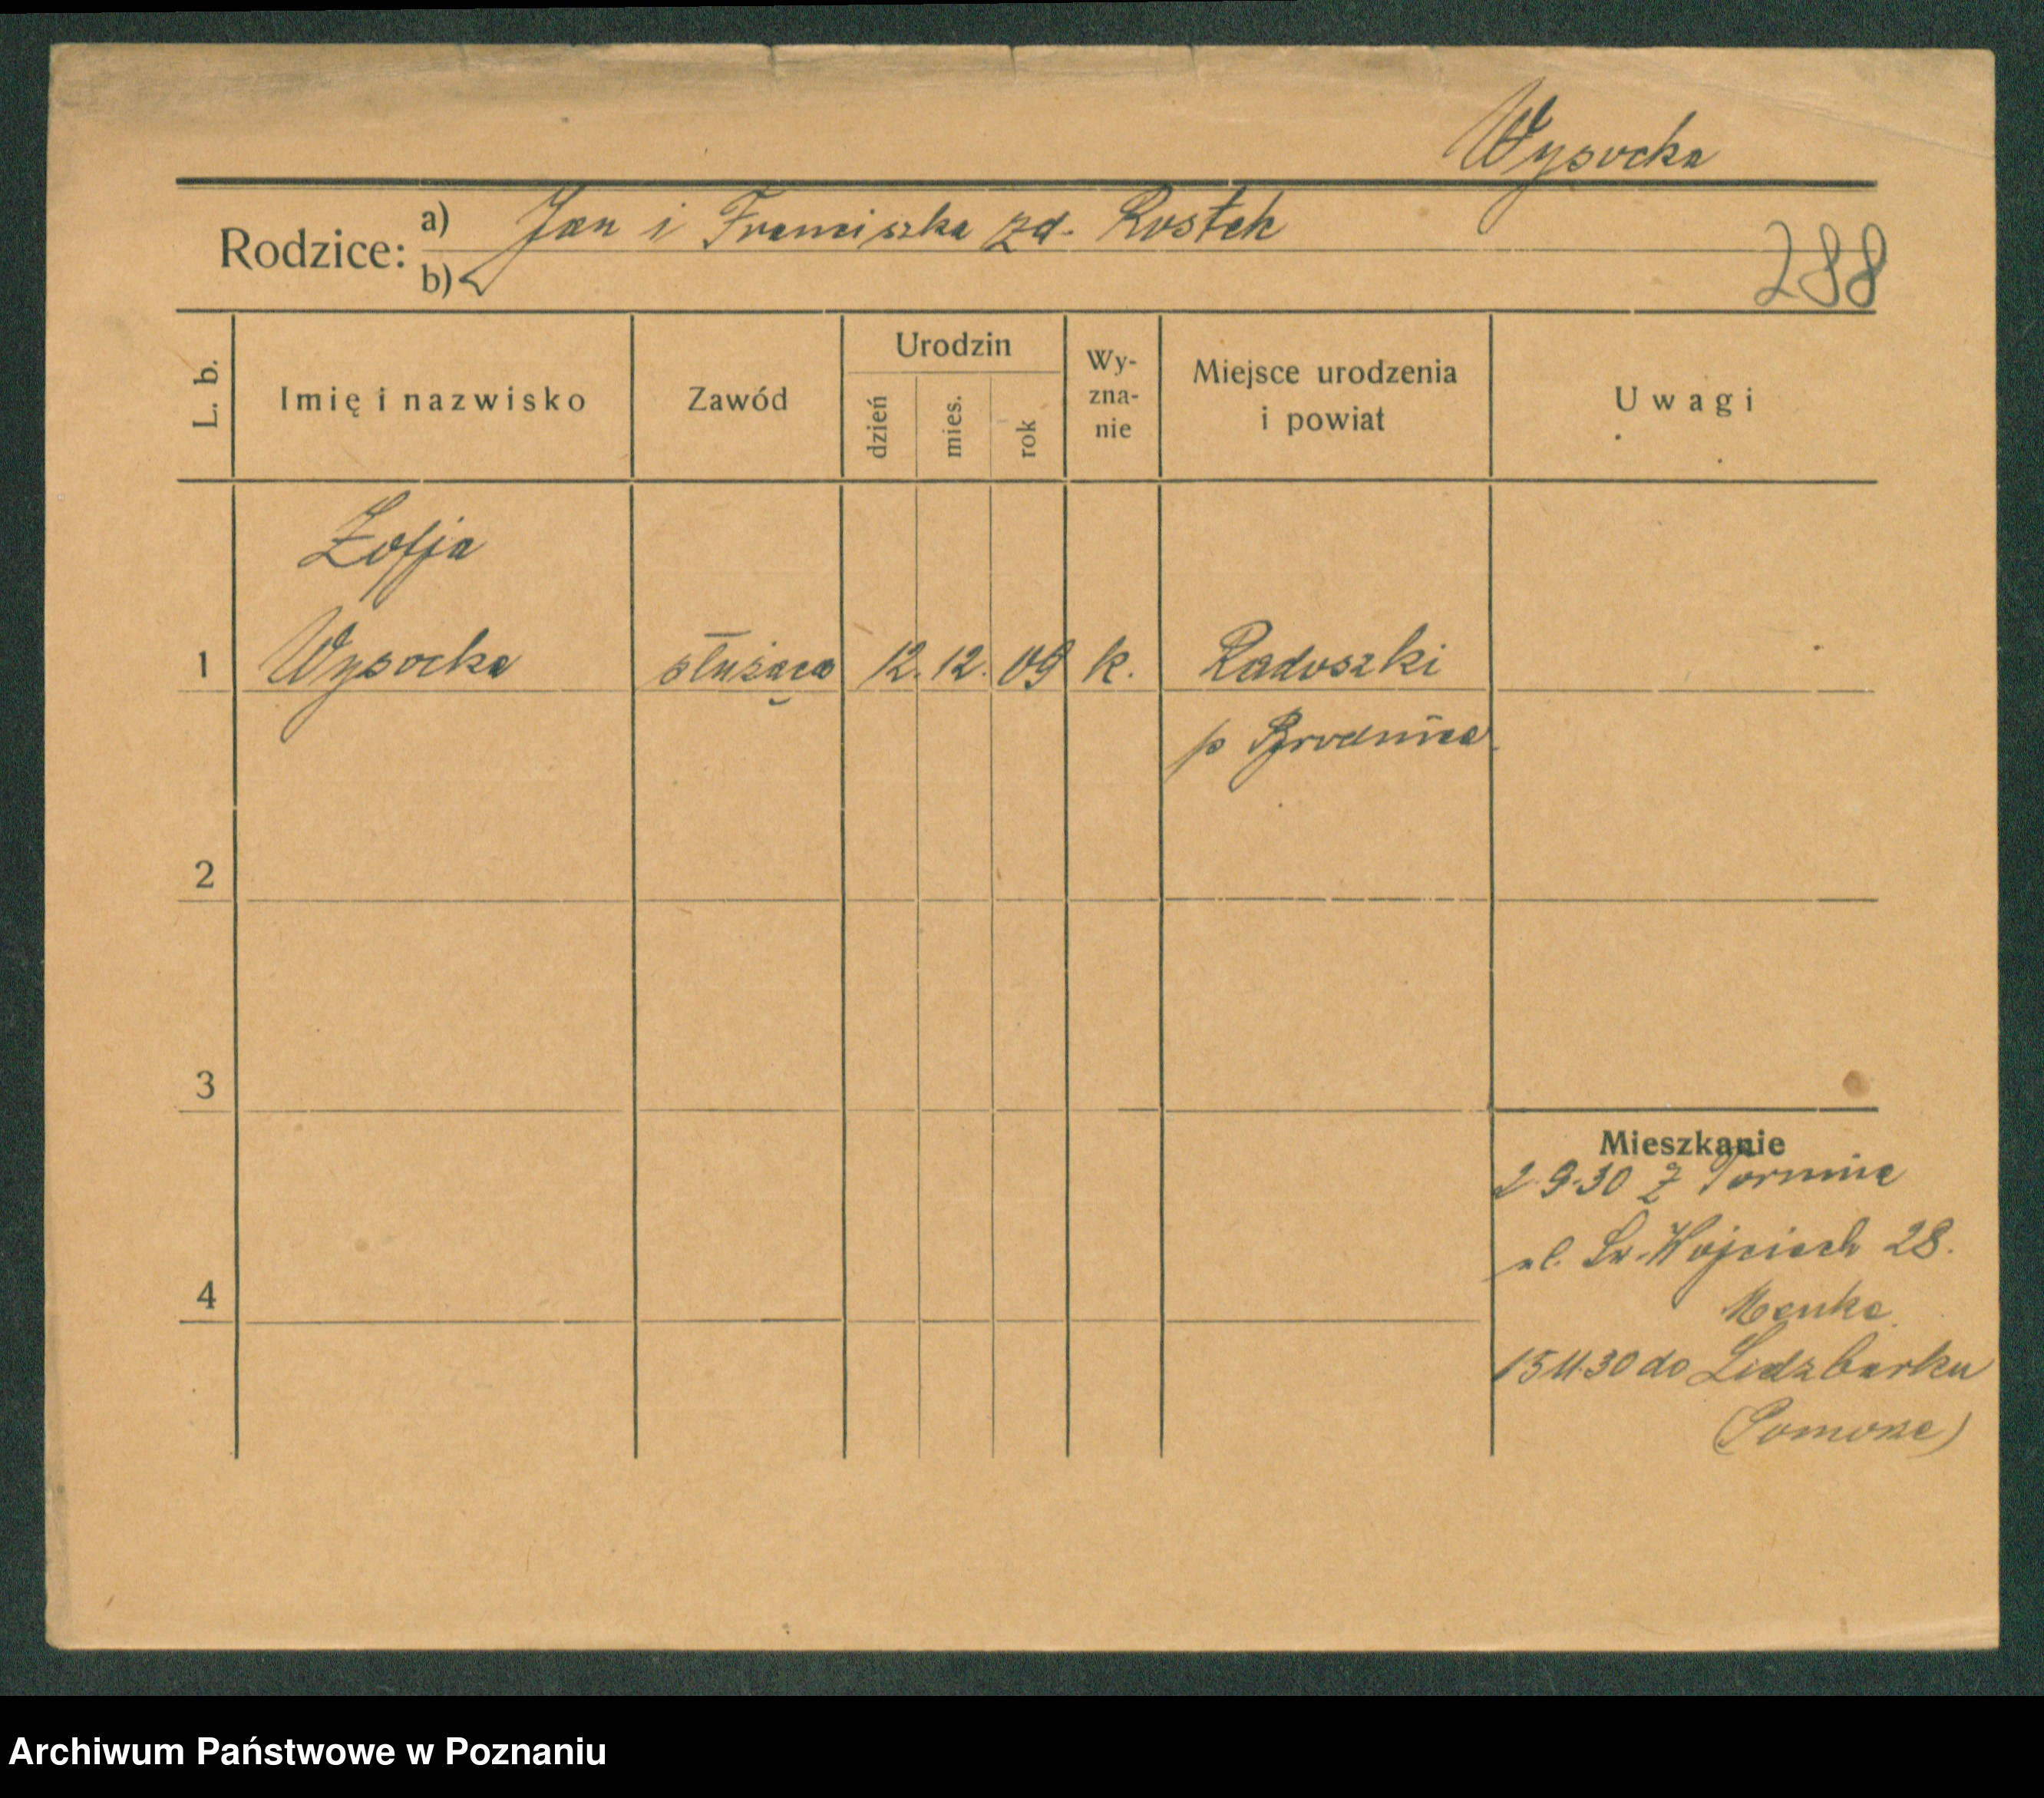 Wysocka
Rodzice: a) Jan i Franciszka zd. Rostek
b)
288
L. b. Imię i nazwisko Zawód Urodzin dzień mies. rok Wy-zna-nie Miejsce urodzenia i powiat Uwagi
Zofja
1 Wysocka służąca 12. 12. 09 k. Radoszki
p Brodnica
2
3
Mieszkanie
2.9.30 z Torunia
ul. Św. Wojciech 28.
4
15 11.30 do Lidzbarku
(Pomorze)
Archiwum Państwowe w Poznaniu